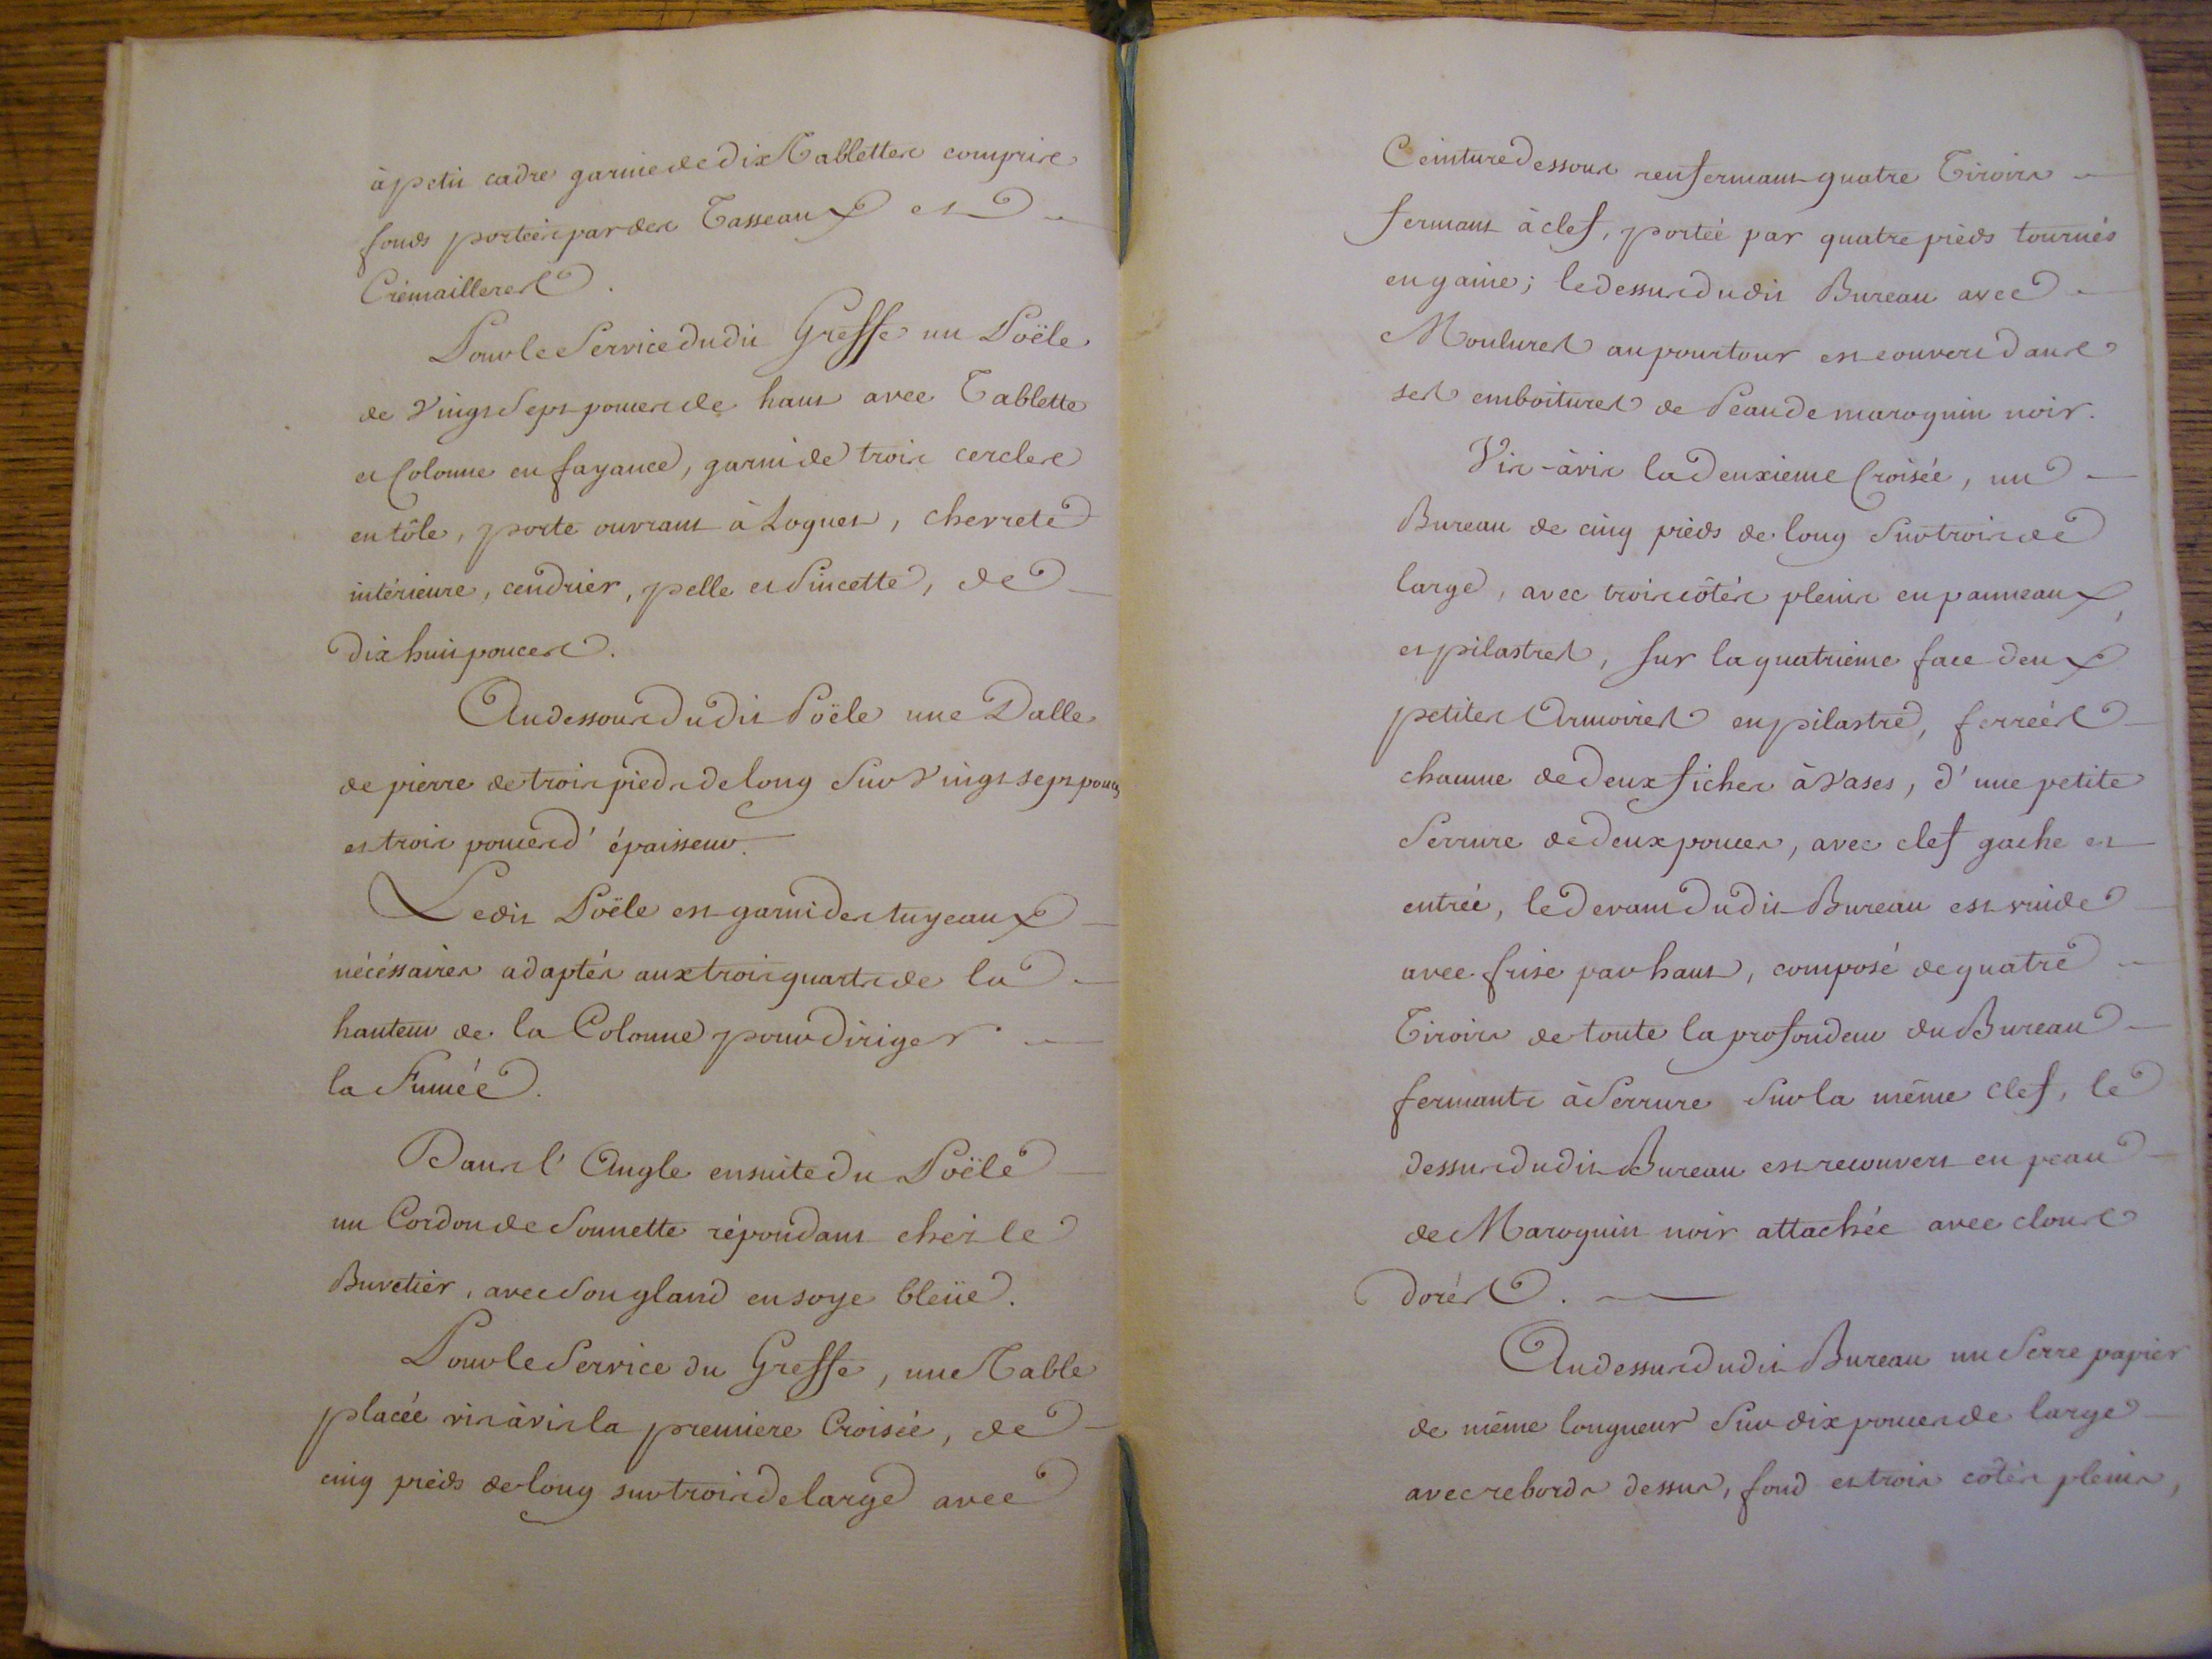 à petit cadre garnie de dix Tablettes compris
fonds portées par des Tasseaux et
Crémailleres.
Pour le Service dudit Greffe un Poële
de Vingt Sept pouces de haut avec Tablette
et Colonne en fayance, garni de trois cercles
en tôle, porte ouvrant à Loquet, chevrete
intérieure, cendrier, pelle et Pincette, de
dix huit pouces.
Au dessous dudit Poële une Dalle
de pierre de trois pieds de long Sur Vingt sept pouces
et trois pouces d'épaisseur.
Ledit Poële est garni des tuyeaux
nécéssaires adaptés aux trois quarts de la
hauteur de la Colonne pour diriger
la Fumée.
Dans l'Angle ensuite du Poële
un Cordon de Sonnette répondant chéz le
Buvetier, avec Son gland en soye bleüe.
Pour le Service du Greffe, une Table
placée vis à vis la premiere Croisée, de
cinq pieds de long sur trois de large avec
Ceinture dessous renfermant quatre Tiroirs
fermant à clef, portée par quatre pieds tournés
en gaine; le dessus dudit Bureau avec
Moulures au pourtour est couvert dans
ses emboitures de Peau de maroquin noir.
Vis-àvis la deuxieme Croisée, un
Bureau de cinq pieds de long Sur trois de
large, avec trois côtés pleins en panneaux,
et pilastres, sur la quatrieme face deux
petites Armoires en pilastre, ferrées
chacune de deux fiches à Vases, d'une petite
Serrure de deux pouces, avec clef gache et
entrée, le devant dudit Bureau est vuide
avec frise par haut, composé de quatre
Tiroirs de toute la profondeur du Bureau
fermants à Serrure Sur la même clef, le
dessus dudit Bureau est recouvert en peau
de Maroquin noir attachée avec clous
dorés.
Au dessus dudit Bureau un Serre papier
de même longueur Sur dix pouces de large
avec rebords dessus, fond et trois cotés pleins,